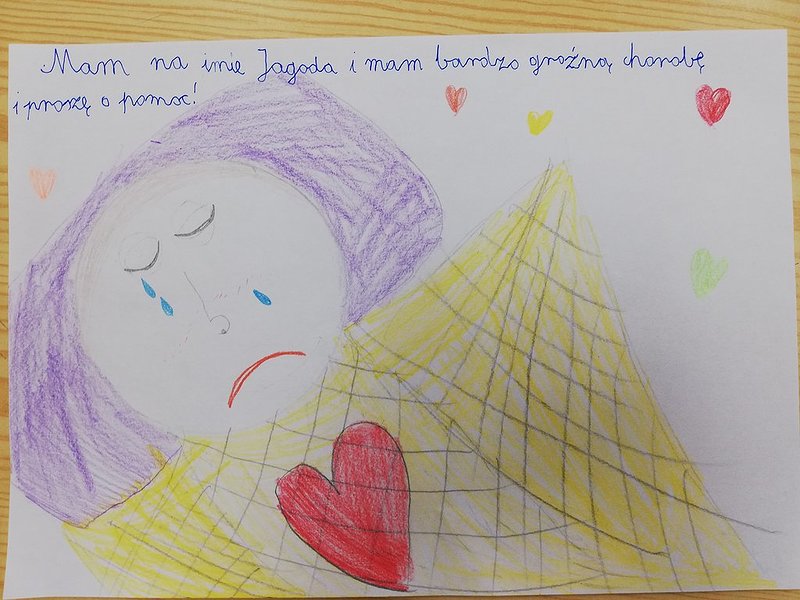 Mam na imie Jagoda i mam bardzo groźną chorobę
i proszę o pomoc!